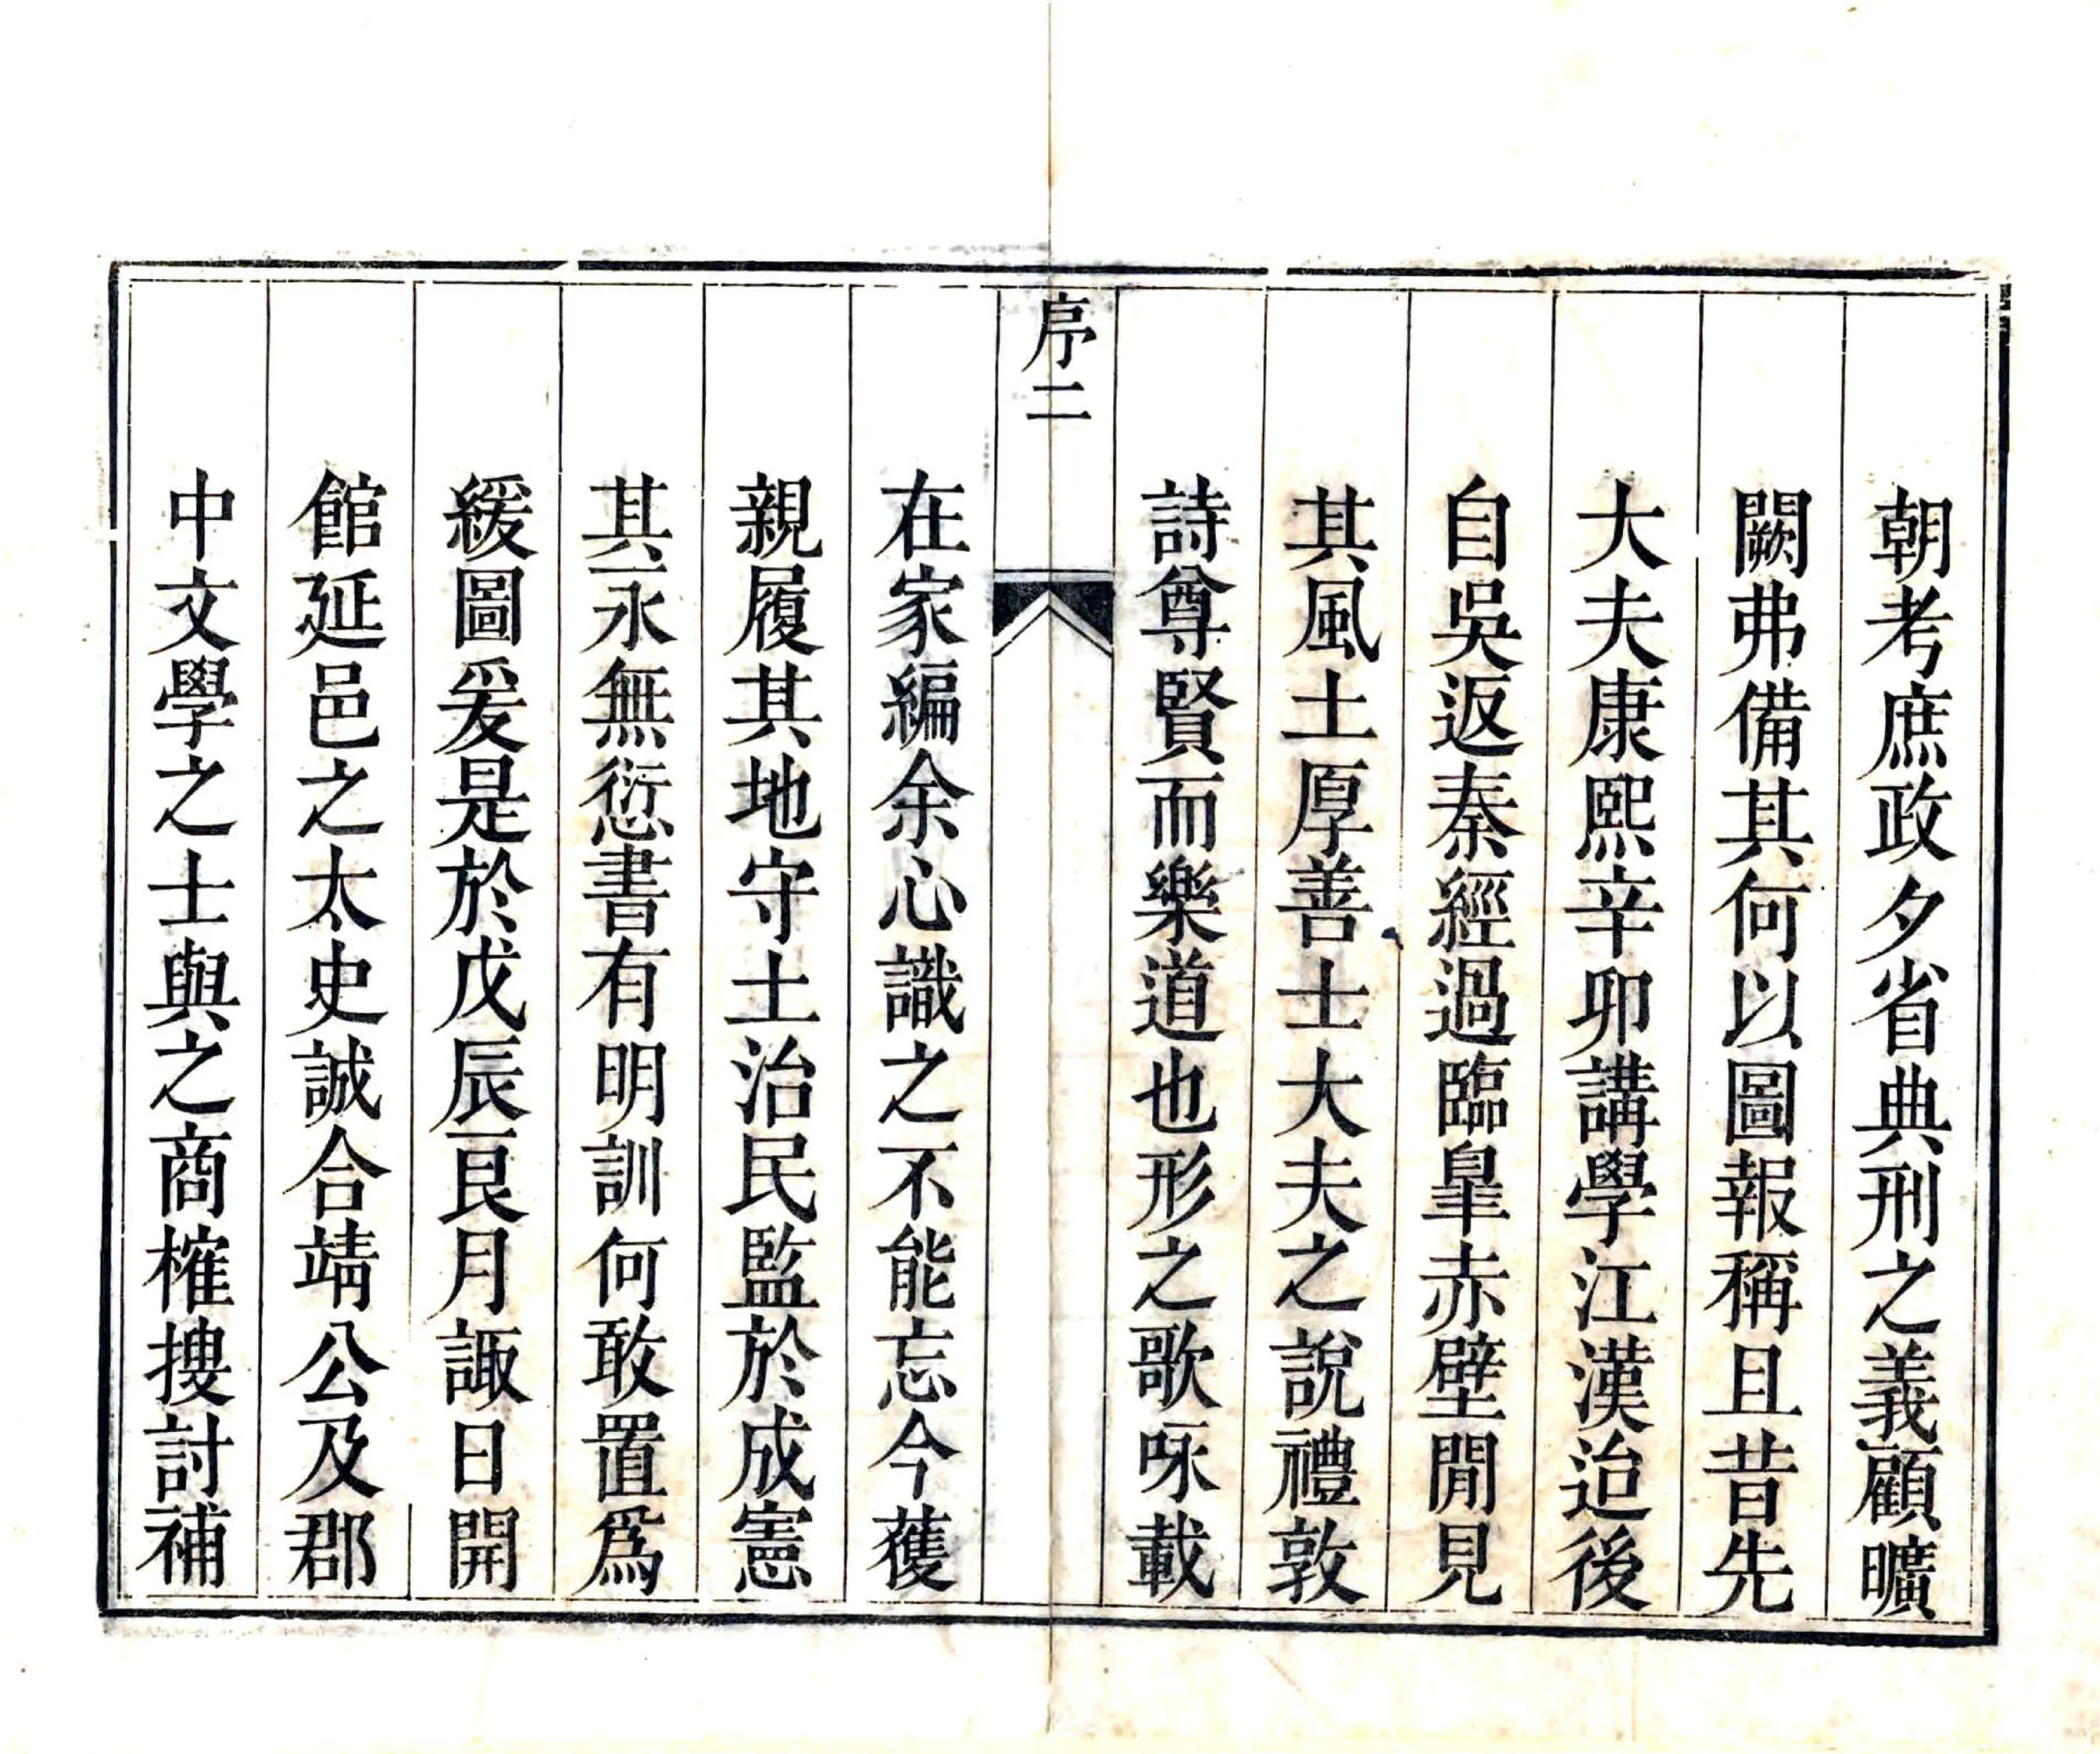 朝考庶政夕省典刑之義顧曠
闕弗備其何以圖報稱且昔先
大夫康熙辛卯講學江漢迨後
自吳返秦經過臨臯赤壁閒見
其風土厚善士大夫之說禮敦
詩尊賢而樂道也形之歌咏載
序二
在家編余心識之不能忘今獲
親履其地守土治民監於成憲
其永無愆書有明訓何敢置爲
緩圖爰是於戊辰艮月諏日開
館延邑之太史誠合靖公及郡
中文學之士與之商榷搜討補